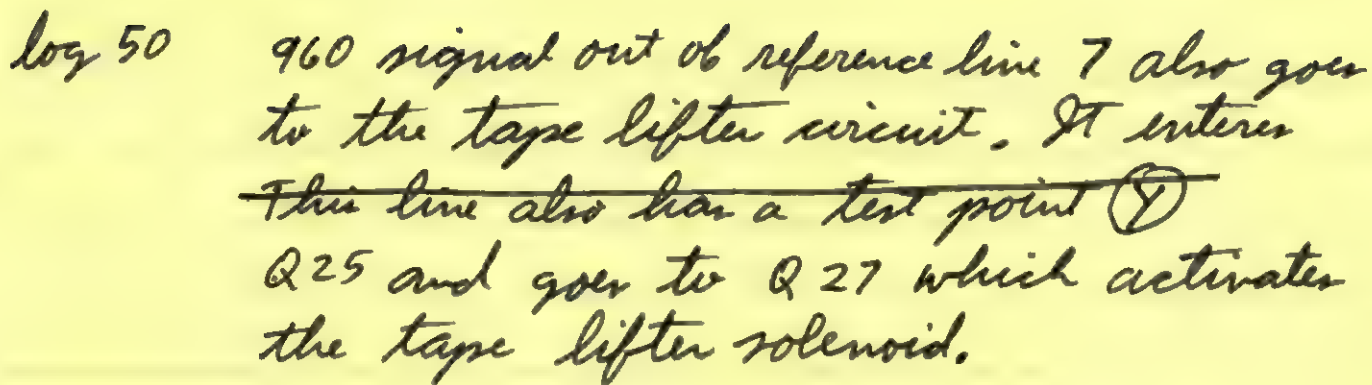 log 50 960 signal out of reference line 7 also goes
to the tape lifter circuit. It enters
This line also has a test point Y
Q25 and goes to Q27 which activates
the tape lifter solenoid.